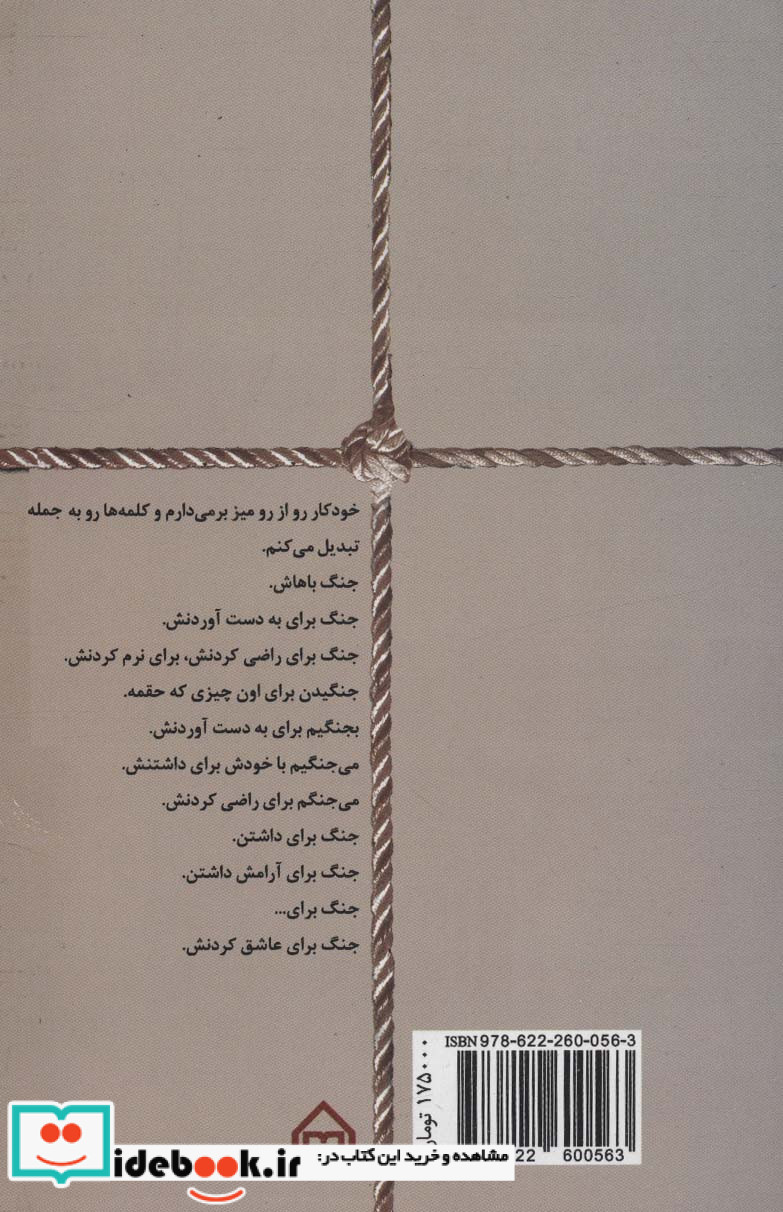 خودکار رو از رو میز برمی‌دارم و کلمه‌ها رو به جمله
تبدیل می‌کنم.
جنگ باهاش.
جنگ برای به دست آوردنش.
جنگ برای راضی کردنش، برای نرم کردنش.
جنگیدن برای اون چیزی که حقمه.
بجنگیم برای به دست آوردنش.
می‌جنگیم با خودش برای داشتنش.
می‌جنگم برای راضی کردنش.
جنگ برای داشتن.
جنگ برای آرامش داشتن.
جنگ برای...
جنگ برای عاشق کردنش.
ISBN 978-622-260-056-3
۱۷۵۰۰۰ تومان
22 600563
مشاهده و خرید این کتاب در:
idebook.ir